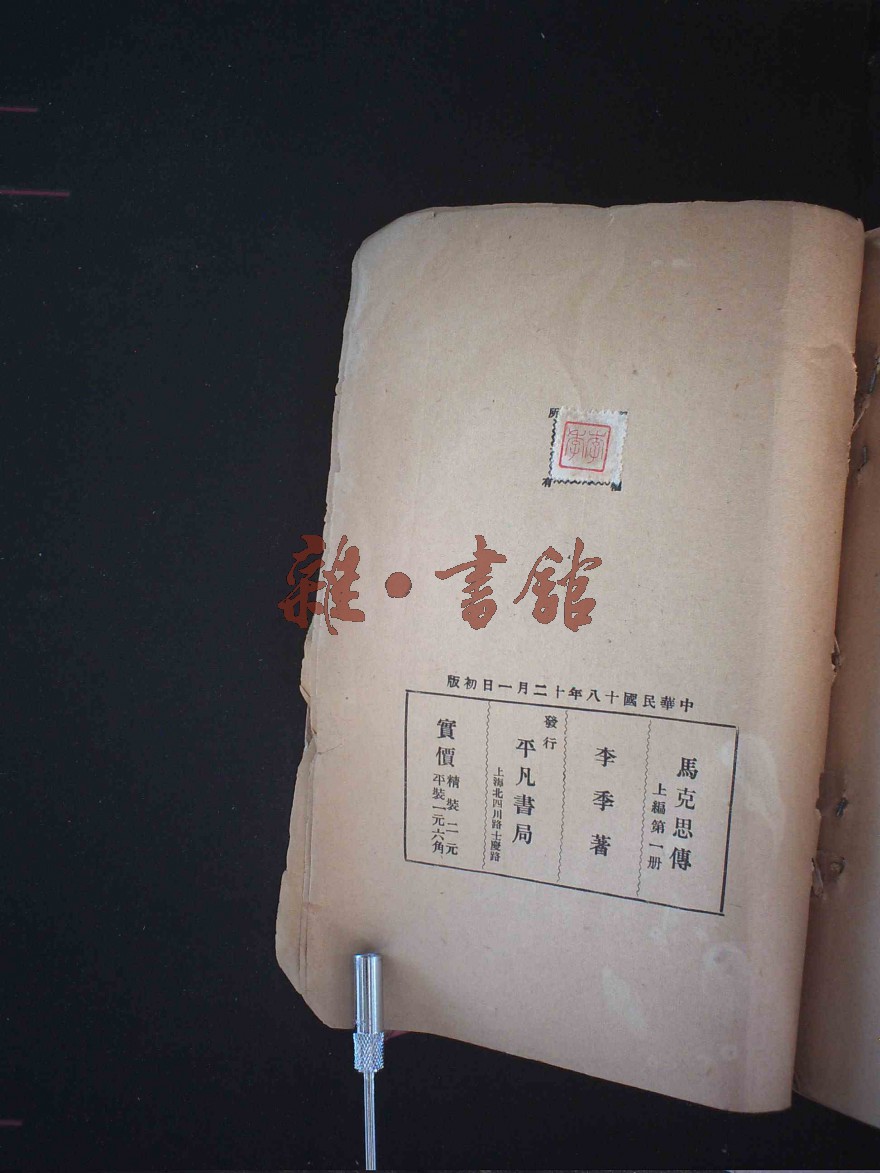 所
有
李季
雜·書館
中華民國十八年十二月一日初版
馬克思傳
上編第一册
李季著
發行
平凡書局
上海北四川路士慶路
實價
精裝二元
平裝一元六角